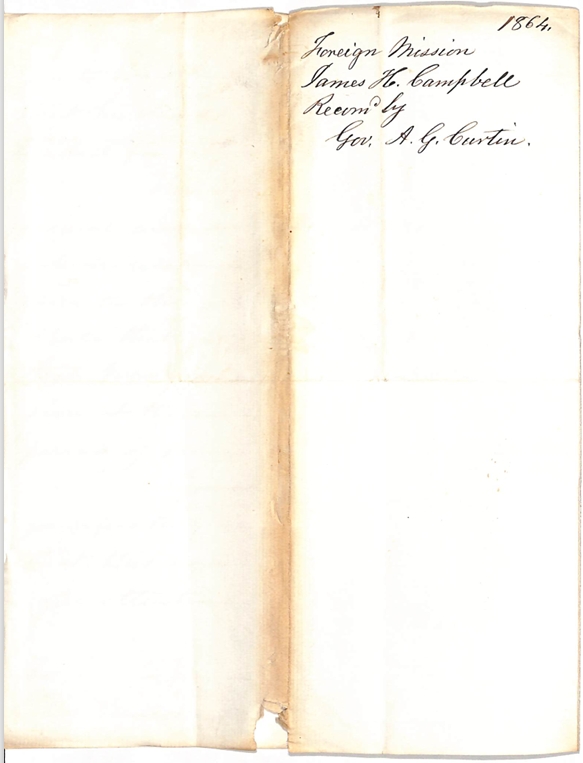 1864.
Foreign Mission
James H. Campbell
Recomd by
Gov. A. G. Curtin.